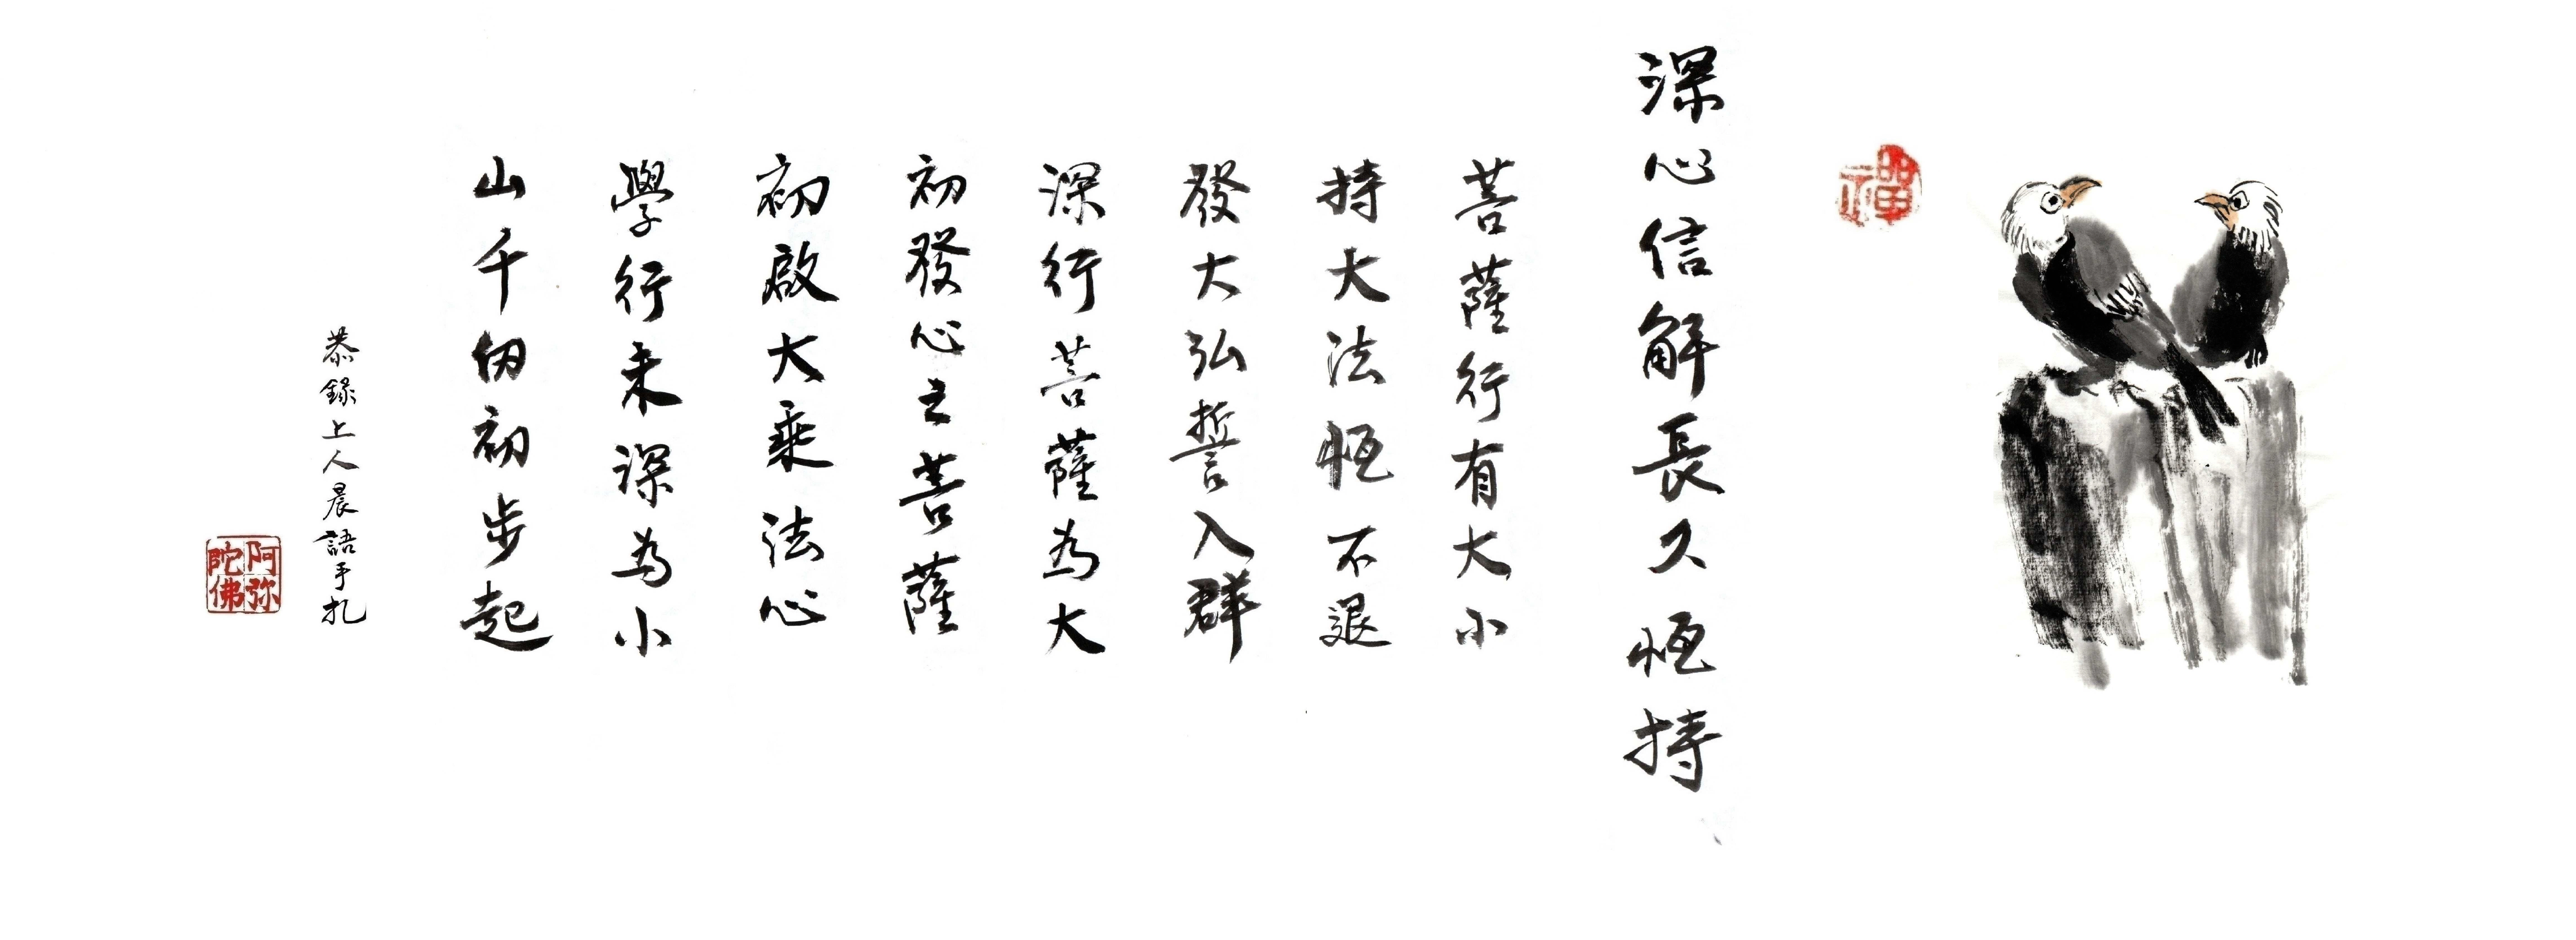 禪
深心信解長久恆持
菩薩行有大小
持大法恆不退
發大弘誓入群
深行菩薩為大
初發心之菩薩
初啟大乘法心
學行未深為小
山千仞初步起
恭錄上人晨語手札
阿弥陀佛